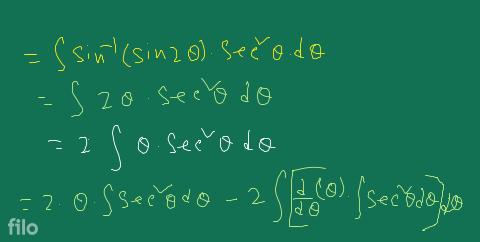 = ∫ sin⁻¹(sin2θ). Sec²θ.dθ
= ∫ 2θ . sec²θ dθ
= 2 ∫ θ. Sec²θ dθ
= 2. θ. ∫ Sec²θ dθ - 2 ∫ [d/dθ (θ). ∫ sec²θ dθ] dθ
filo